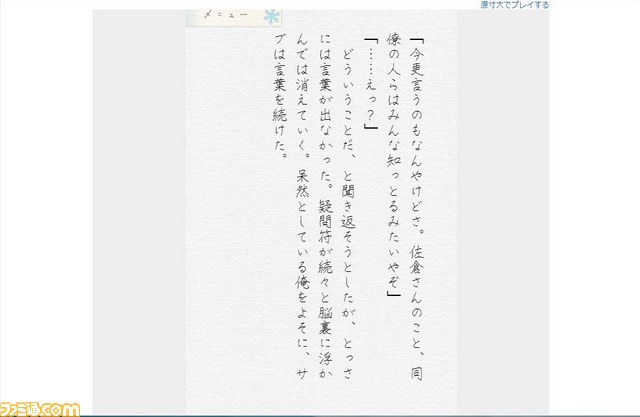 原寸大でプレイする
メニュー
「今更言うのもなんやけどさ。佐倉さんのこと、同
僚の人らはみんな知っとるみたいやぞ」
「……えっ?」
　どういうことだ、と聞き返そうとしたが、とっさ
には言葉が出なかった。疑問符が続々と脳裏に浮か
んでは消えていく。呆然としている俺をよそに、サ
ブは言葉を続けた。
ファミ通.com